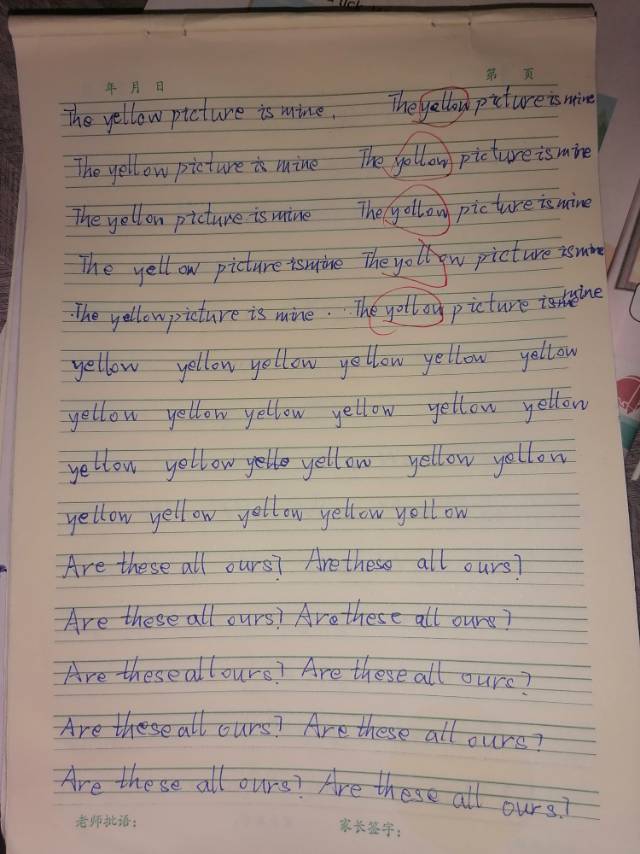 年 月 日 第 页
The yellow picture is mine. The yellow picture is mine
The yellow picture is mine The yollow picture is mine
The yellon picture is mine The yollow picture is mine
The yellow picture is mine The yollow picture is mine
The yellow picture is mine. The yollow picture is mine
yellow yellow yellow yellow yellow yellow
yellow yellow yellow yellow yellow yellow
yellow yellow yello yellow yellow yellow
yellow yellow yellow yellow yellow
Are these all ours? Are these all ours?
Are these all ours? Are these all ours?
Are these all ours? Are these all ours?
Are these all ours? Are these all ours?
Are these all ours? Are these all ours?
老师批语: 家长签字: